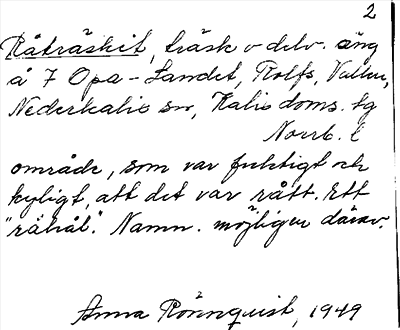 2
Råträsket, träsk o delv. äng
å 7 Opa-Landet, Rolfs,
Nederkalix sn, Kalix doms. tg
Norrb. l
område, som var fuktigt och
kyligt, att det var rått. Ett
"råhål". Namn. möjligen därav.
Anna Rönnquist, 1949